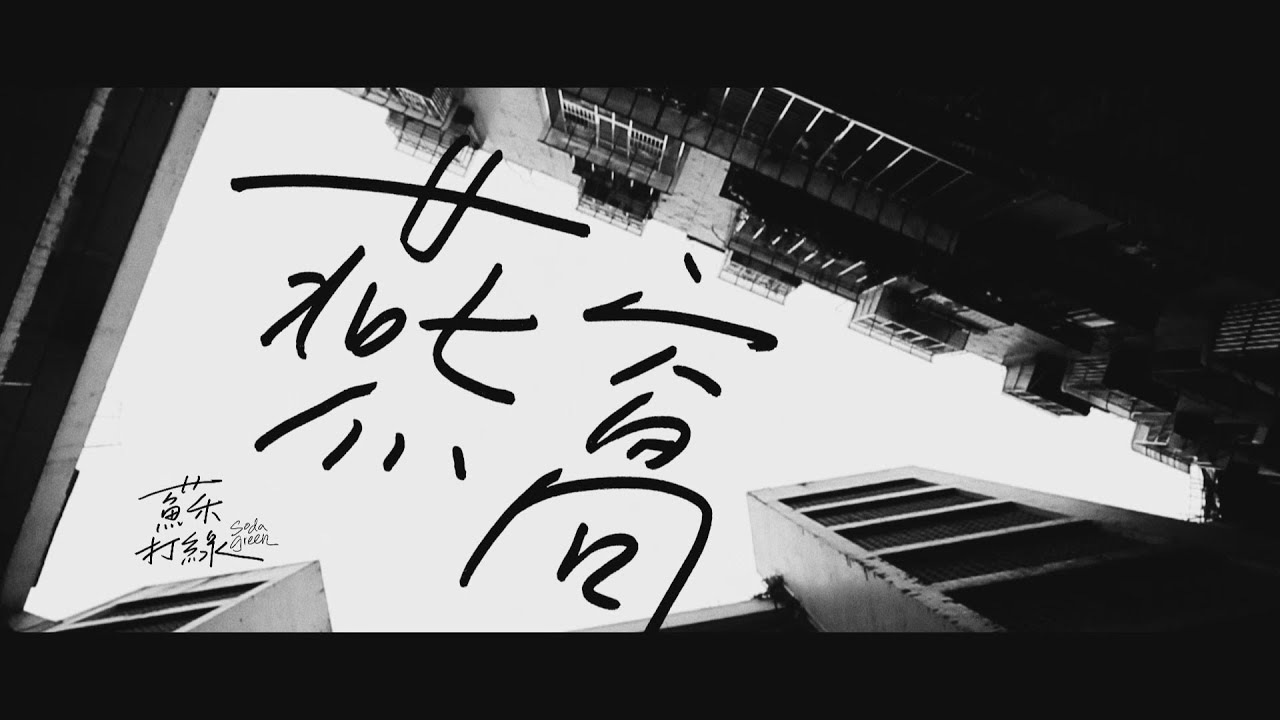 燕窩
蘇
打綠
Soda
green